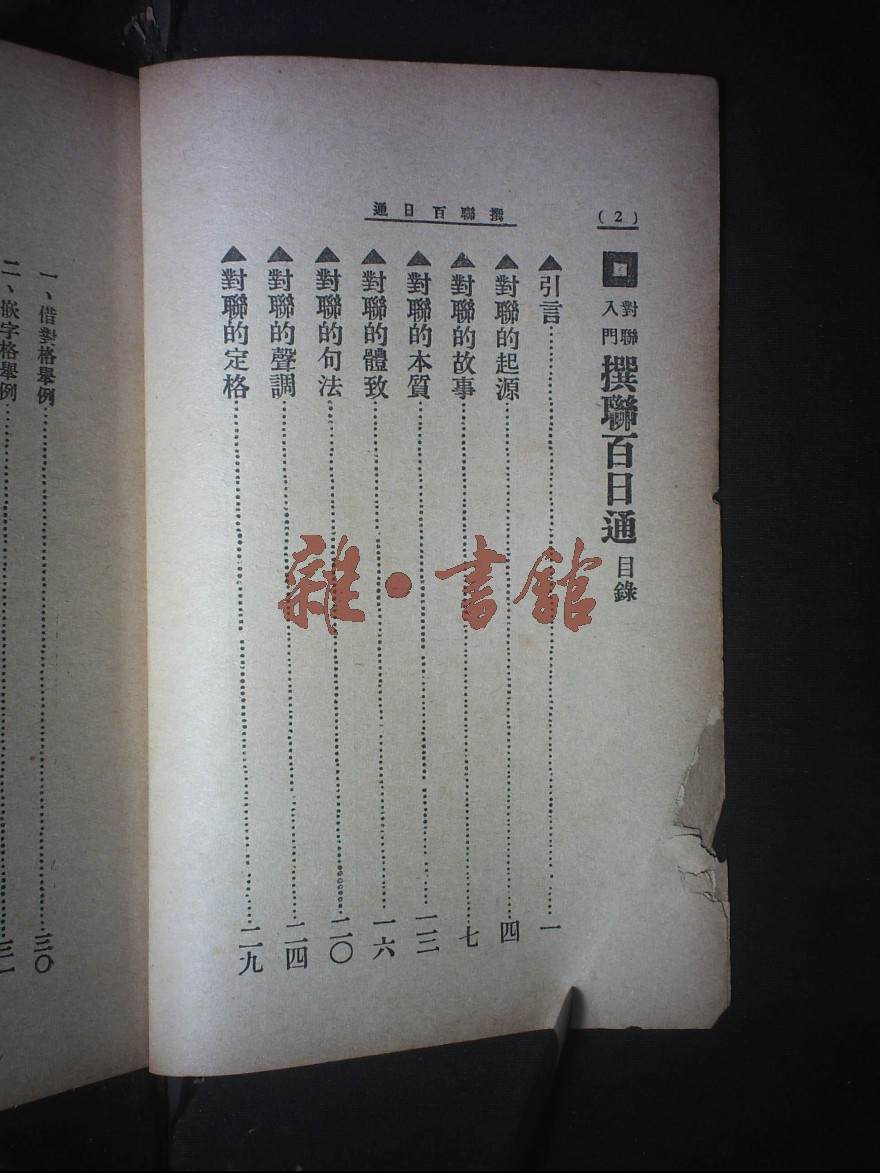 (2)
撰聯百日通
對聯入門 撰聯百日通 目錄
▲引言……一
▲對聯的起源……四
▲對聯的故事……七
▲對聯的本質……一三
▲對聯的體致……一六
▲對聯的句法……二〇
▲對聯的聲調……二四
▲對聯的定格……二九
一、借對格舉例……三〇
二、嵌字格舉例……三一
雜·書館